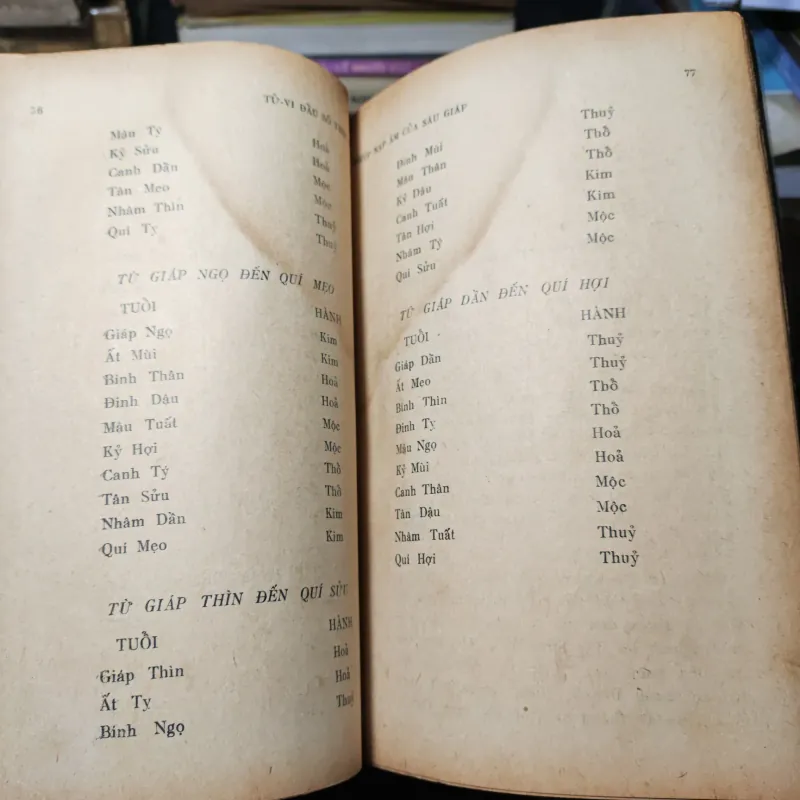 76 TỬ-VI ĐẨU SỐ
Mậu Tý Hoả
Kỷ Sửu Hoả
Canh Dần Mộc
Tân Mẹo Mộc
Nhâm Thìn Thuỷ
Quí Tỵ Thuỷ
TỪ GIÁP NGỌ ĐẾN QUÍ MẸO
TUỔI HÀNH
Giáp Ngọ Kim
Ất Mùi Kim
Bính Thân Hoả
Đinh Dậu Hoả
Mậu Tuất Mộc
Kỷ Hợi Mộc
Canh Tý Thổ
Tân Sửu Thổ
Nhâm Dần Kim
Quí Mẹo Kim
TỪ GIÁP THÌN ĐẾN QUÍ SỬU
TUỔI HÀNH
Giáp Thìn Hoả
Ất Tỵ Hoả
Bính Ngọ Thuỷ
NẠP ÂM CỦA SÁU GIÁP 77
Đinh Mùi Thuỷ
Mậu Thân Thổ
Kỷ Dậu Thổ
Canh Tuất Kim
Tân Hợi Kim
Nhâm Tý Mộc
Quí Sửu Mộc
TỪ GIÁP DẦN ĐẾN QUÍ HỢI
TUỔI HÀNH
Giáp Dần Thuỷ
Ất Mẹo Thuỷ
Bính Thìn Thổ
Đinh Tỵ Thổ
Mậu Ngọ Hoả
Kỷ Mùi Hoả
Canh Thân Mộc
Tân Dậu Mộc
Nhâm Tuất Thuỷ
Quí Hợi Thuỷ